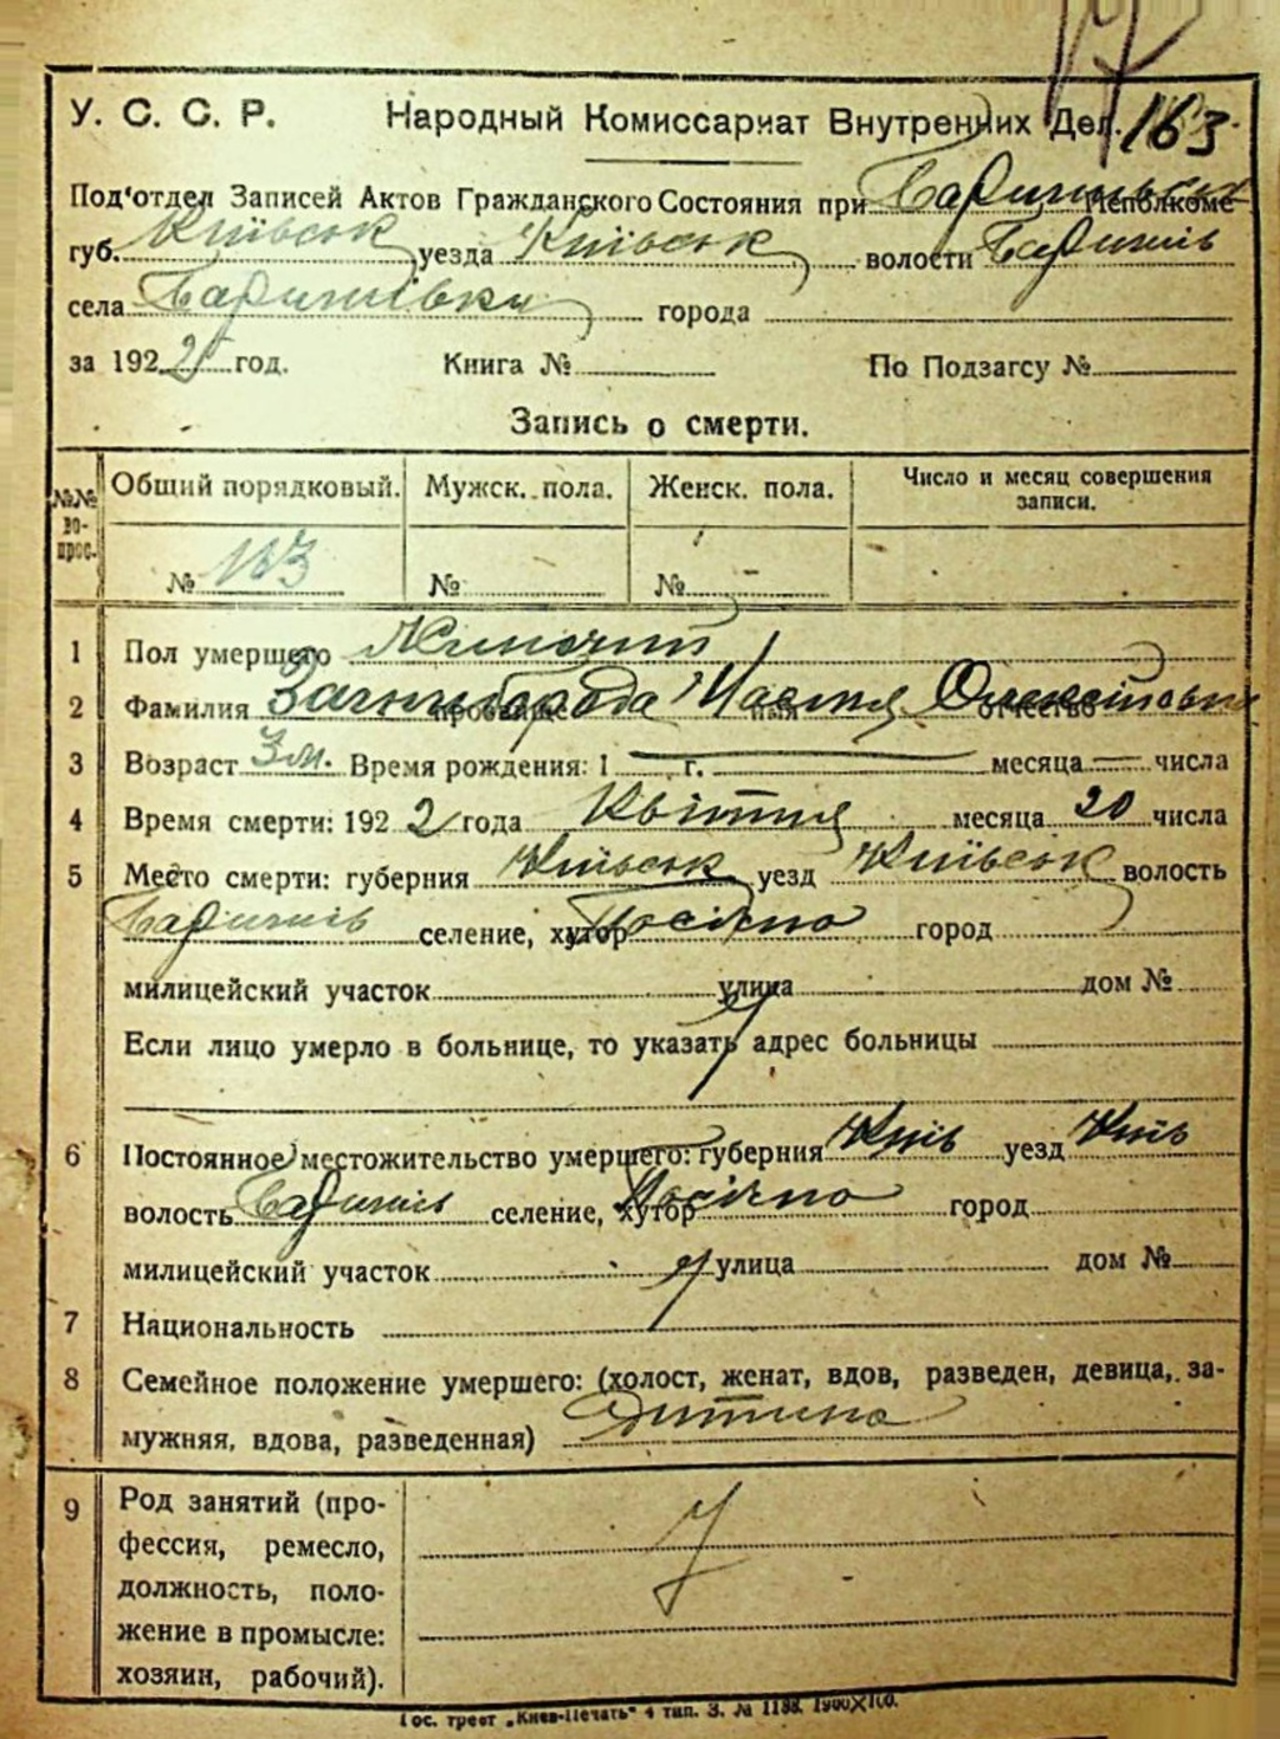 17
У. С. С. Р. Народный Комиссариат Внутренних Дел. 163
Под'отдел Записей Актов Гражданского Состояния при Баришівськ Исполкоме
губ. Київськ уезда Київськ волости Баришів
села Баришівки города
за 1922 год. Книга № По Подзагсу №
Запись о смерти.
№№ вопрос. Общий порядковый. Мужск. пола. Женск. пола. Число и месяц совершения записи.
№ 163 № №
1 Пол умершего Жіночий
2 Фамилия прозвище Настя имя Олексіївна отчество
3 Возраст 3 м. Время рождения: 1 г. месяца числа
4 Время смерти: 1922 года Квітня месяца 20 числа
5 Место смерти: губерния Київськ уезд Київськ волость
Баришів селение, хутор город
милицейский участок улица дом №
Если лицо умерло в больнице, то указать адрес больницы
6 Постоянное местожительство умершего: губерния Київ уезд Київ
волость Баришів селение, хутор город
милицейский участок улица дом №
7 Национальность
8 Семейное положение умершего: (холост, женат, вдов, разведен, девица, за-
мужняя, вдова, разведенная) Дитина
9 Род занятий (про-
фессия, ремесло,
должность, поло-
жение в промысле:
хозяин, рабочий).
Гос. трест „Киев-Печать" 4 тип. З. № 1188. 1900×100.